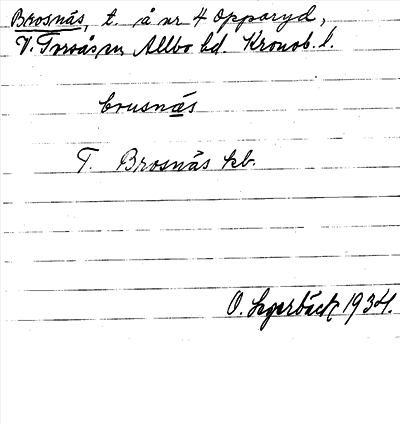 Brosnäs, t. å nr 4 Opparyd,
V. Torsås sn Allbo hd. Kronob. l.
brusnäs
T. Brosnäs kb.
O. Lagerbäck 1934.